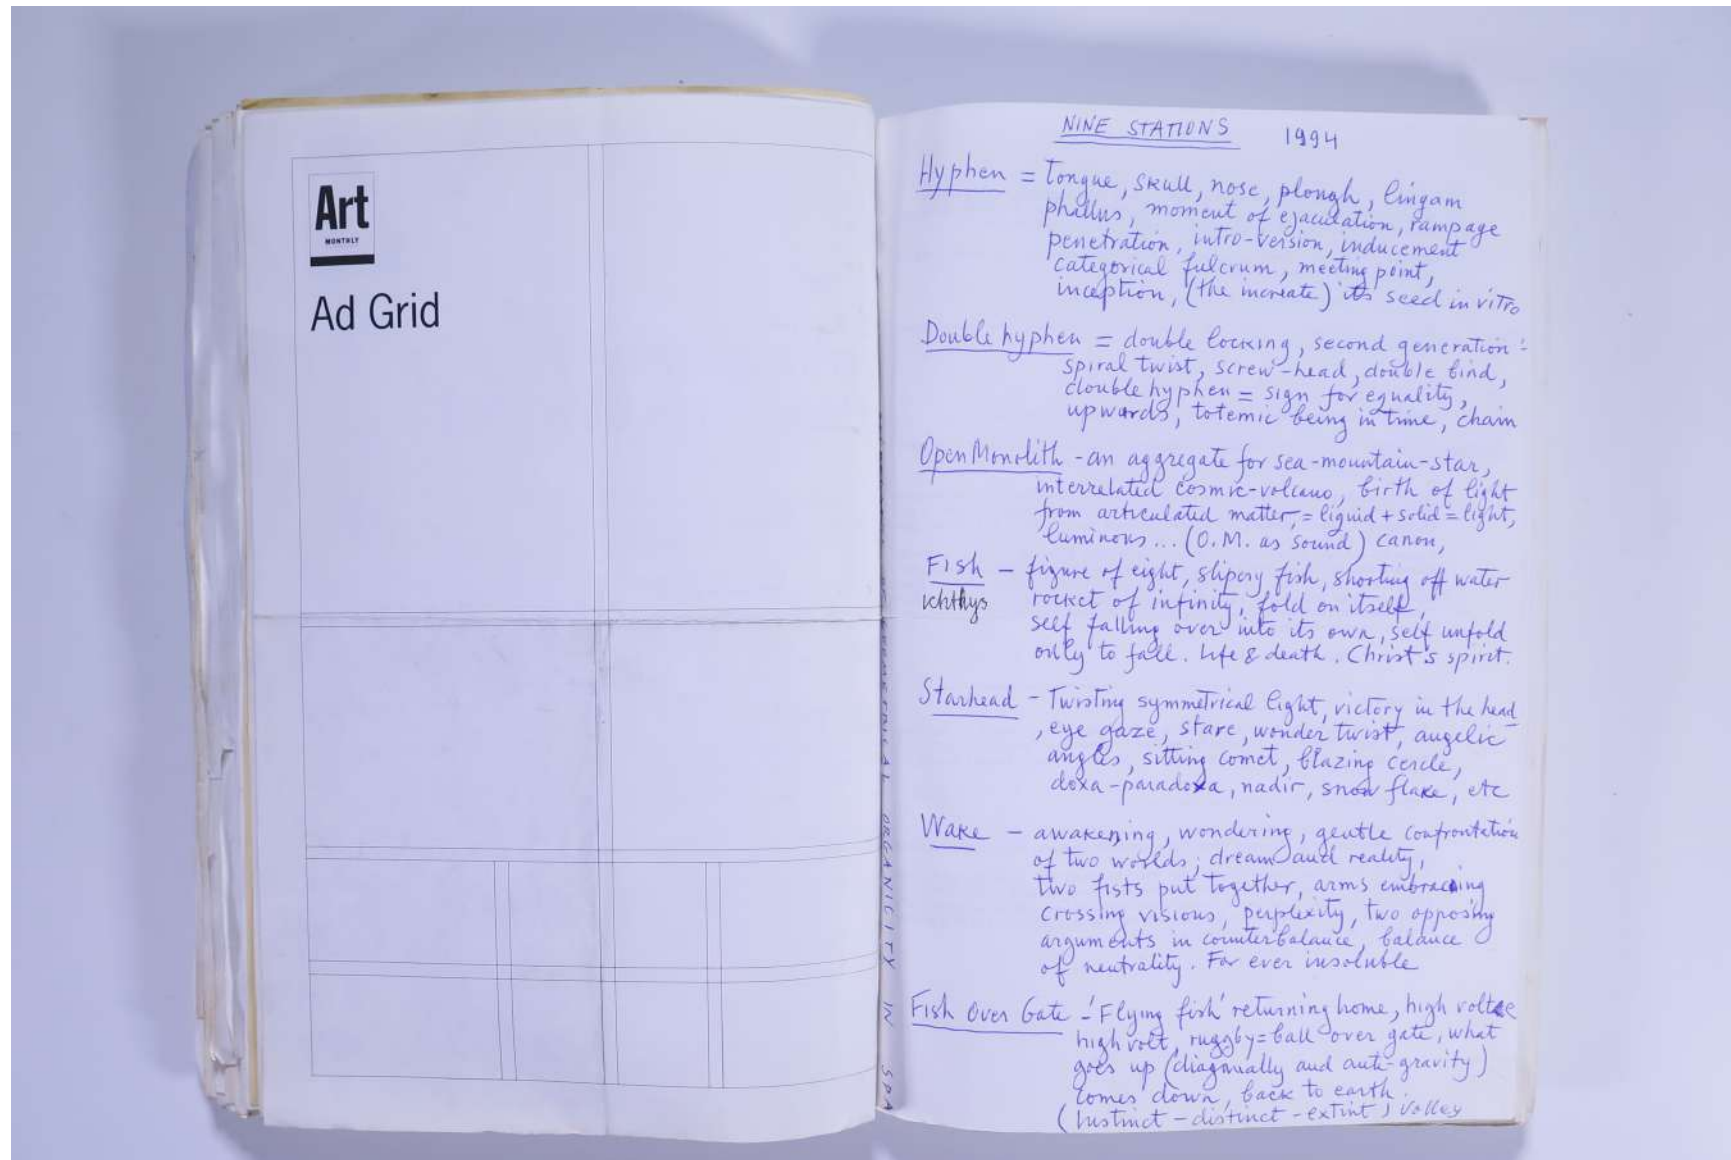 Art
MONTHLY
Ad Grid
ORGANICITY IN SPA
NINE STATIONS 1994
Hyphen = Tongue, skull, nose, plough, lingam
phallus, moment of ejaculation, rampage
penetration, intro-version, inducement
categorical fulcrum, meeting point,
inception, (the increate) its seed in vitro
Double hyphen = double locking, second generation
spiral twist, screw-head, double bind,
double hyphen = sign for equality,
upwards, totemic being in time, chain
Open Monolith - an aggregate for sea-mountain-star,
interrelated cosmic-volcano, birth of light
from articulated matter, = liquid + solid = light,
luminous... (O.M. as sound) canon,
Fish - figure of eight, slipery fish, shorting off water
ichthys rocket of infinity, fold on itself,
self falling over into its own, self unfold
only to fall. Life & death. Christ's spirit.
Starhead - Twisting symmetrical light, victory in the head
, eye gaze, stare, wonder twist, angelic
angles, sitting comet, blazing cercle,
doxa-paradoxa, nadir, snow flake, etc
Wake - awakening, wondering, gentle confrontation
of two worlds; dream and reality,
two fists put together, arms embracing
crossing visions, perplexity, two opposing
arguments in counterbalance, balance
of neutrality. For ever insoluble
Fish Over Gate - 'Flying fish' returning home, high
high volt, ruggby=ball over gate, what
goes up (diagonally and anti-gravity)
comes down, back to earth.
(Instinct - distinct - extint) volley